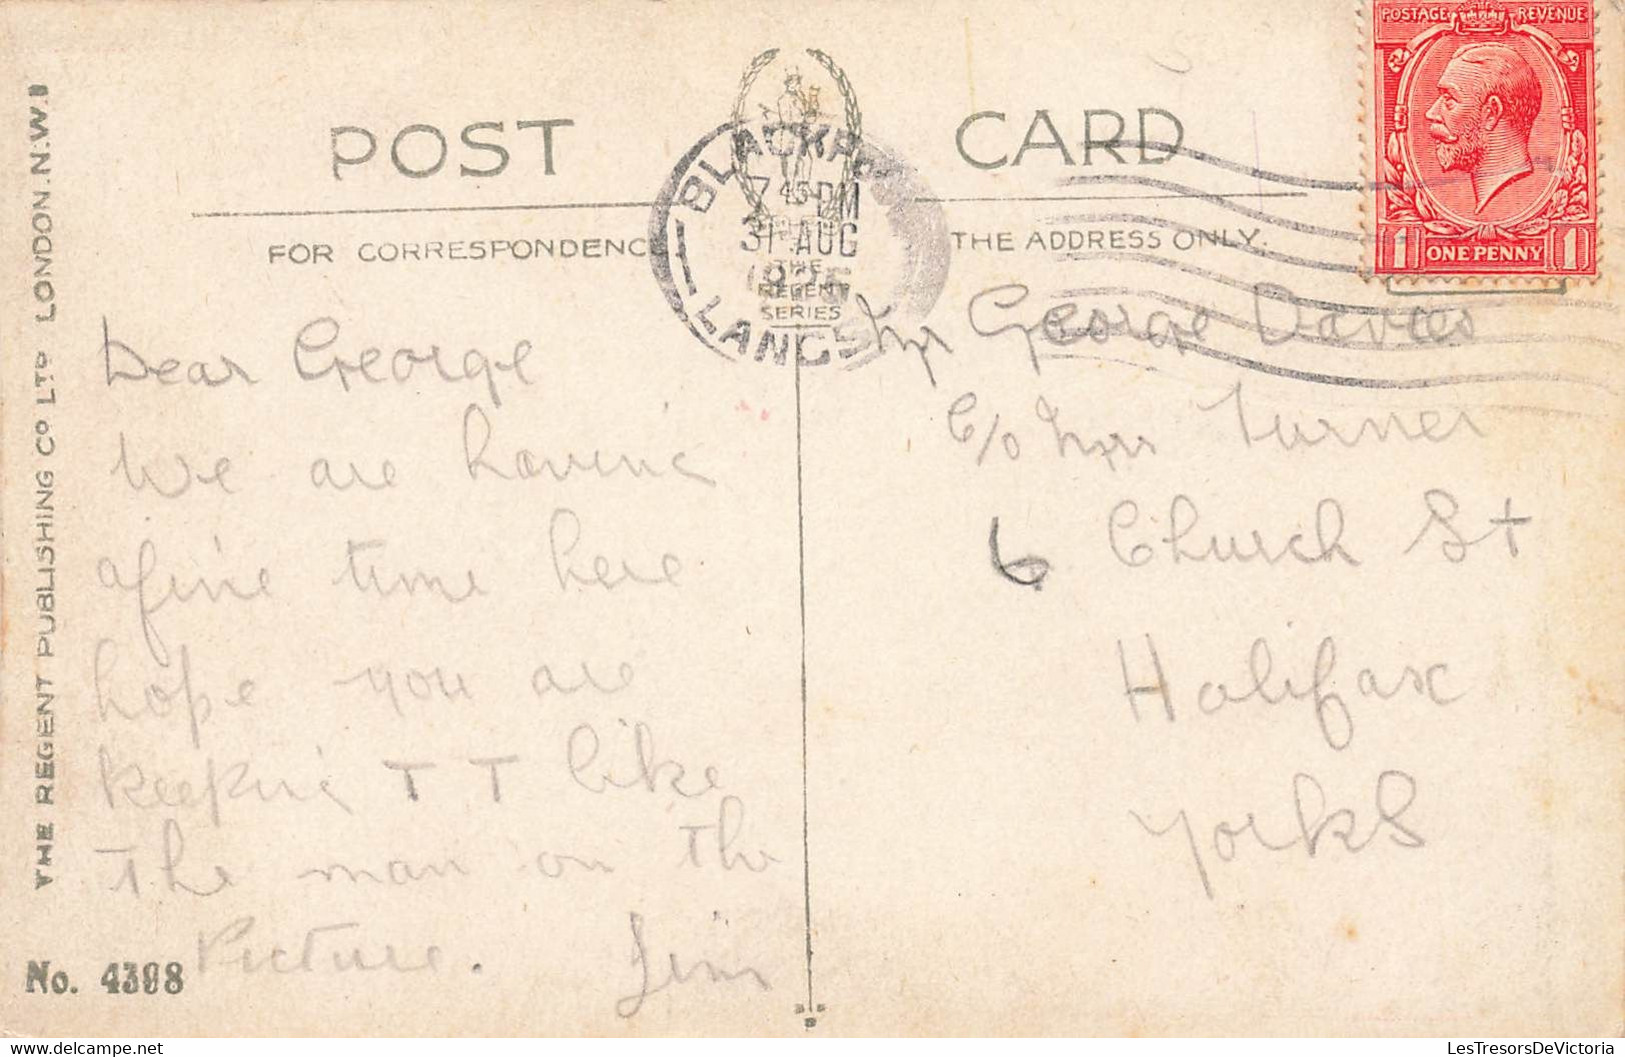 POSTAGE REVENUE
1 ONE PENNY 1
POST CARD
FOR CORRESPONDENCE
THE ADDRESS ONLY.
BLACKPOOL
7 45 PM
31 AUG
LANCS
THE
REGENT
SERIES
THE REGENT PUBLISHING CO LTD LONDON.N.W.1
No. 4398
Dear George
We are having
a fine time here
hope you are
keeping T T like
the man on the
Picture. Jim
Mr George Davies
C/o Mrs Turner
6 Church St
Halifax
Yorks
LesTresorsDeVictoria
LesTresorsDeVictoria.com